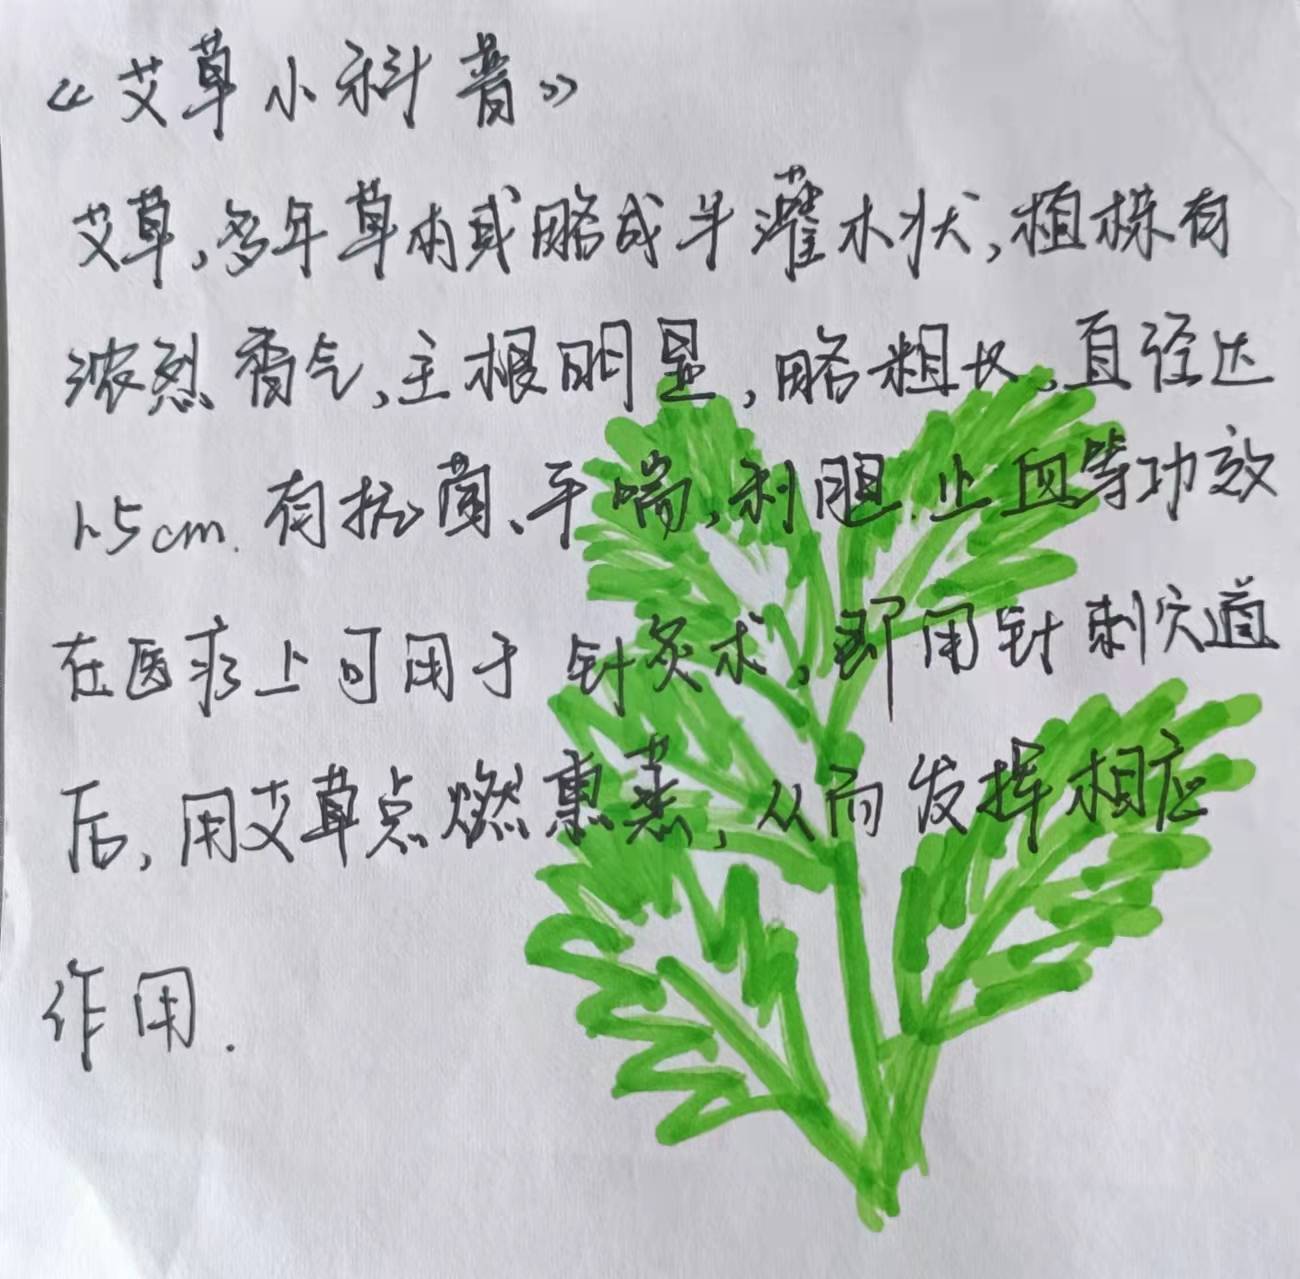 《艾草小科普》
艾草,多年草本或略成半灌木状,植株有
浓烈香气,主根明显,略粗长,直径达
1.5cm.有抗菌、平喘,利胆.止血等功效
在医疗上可用于针灸术,即用针刺穴道
后,用艾草点燃熏蒸,从而发挥相应
作用.